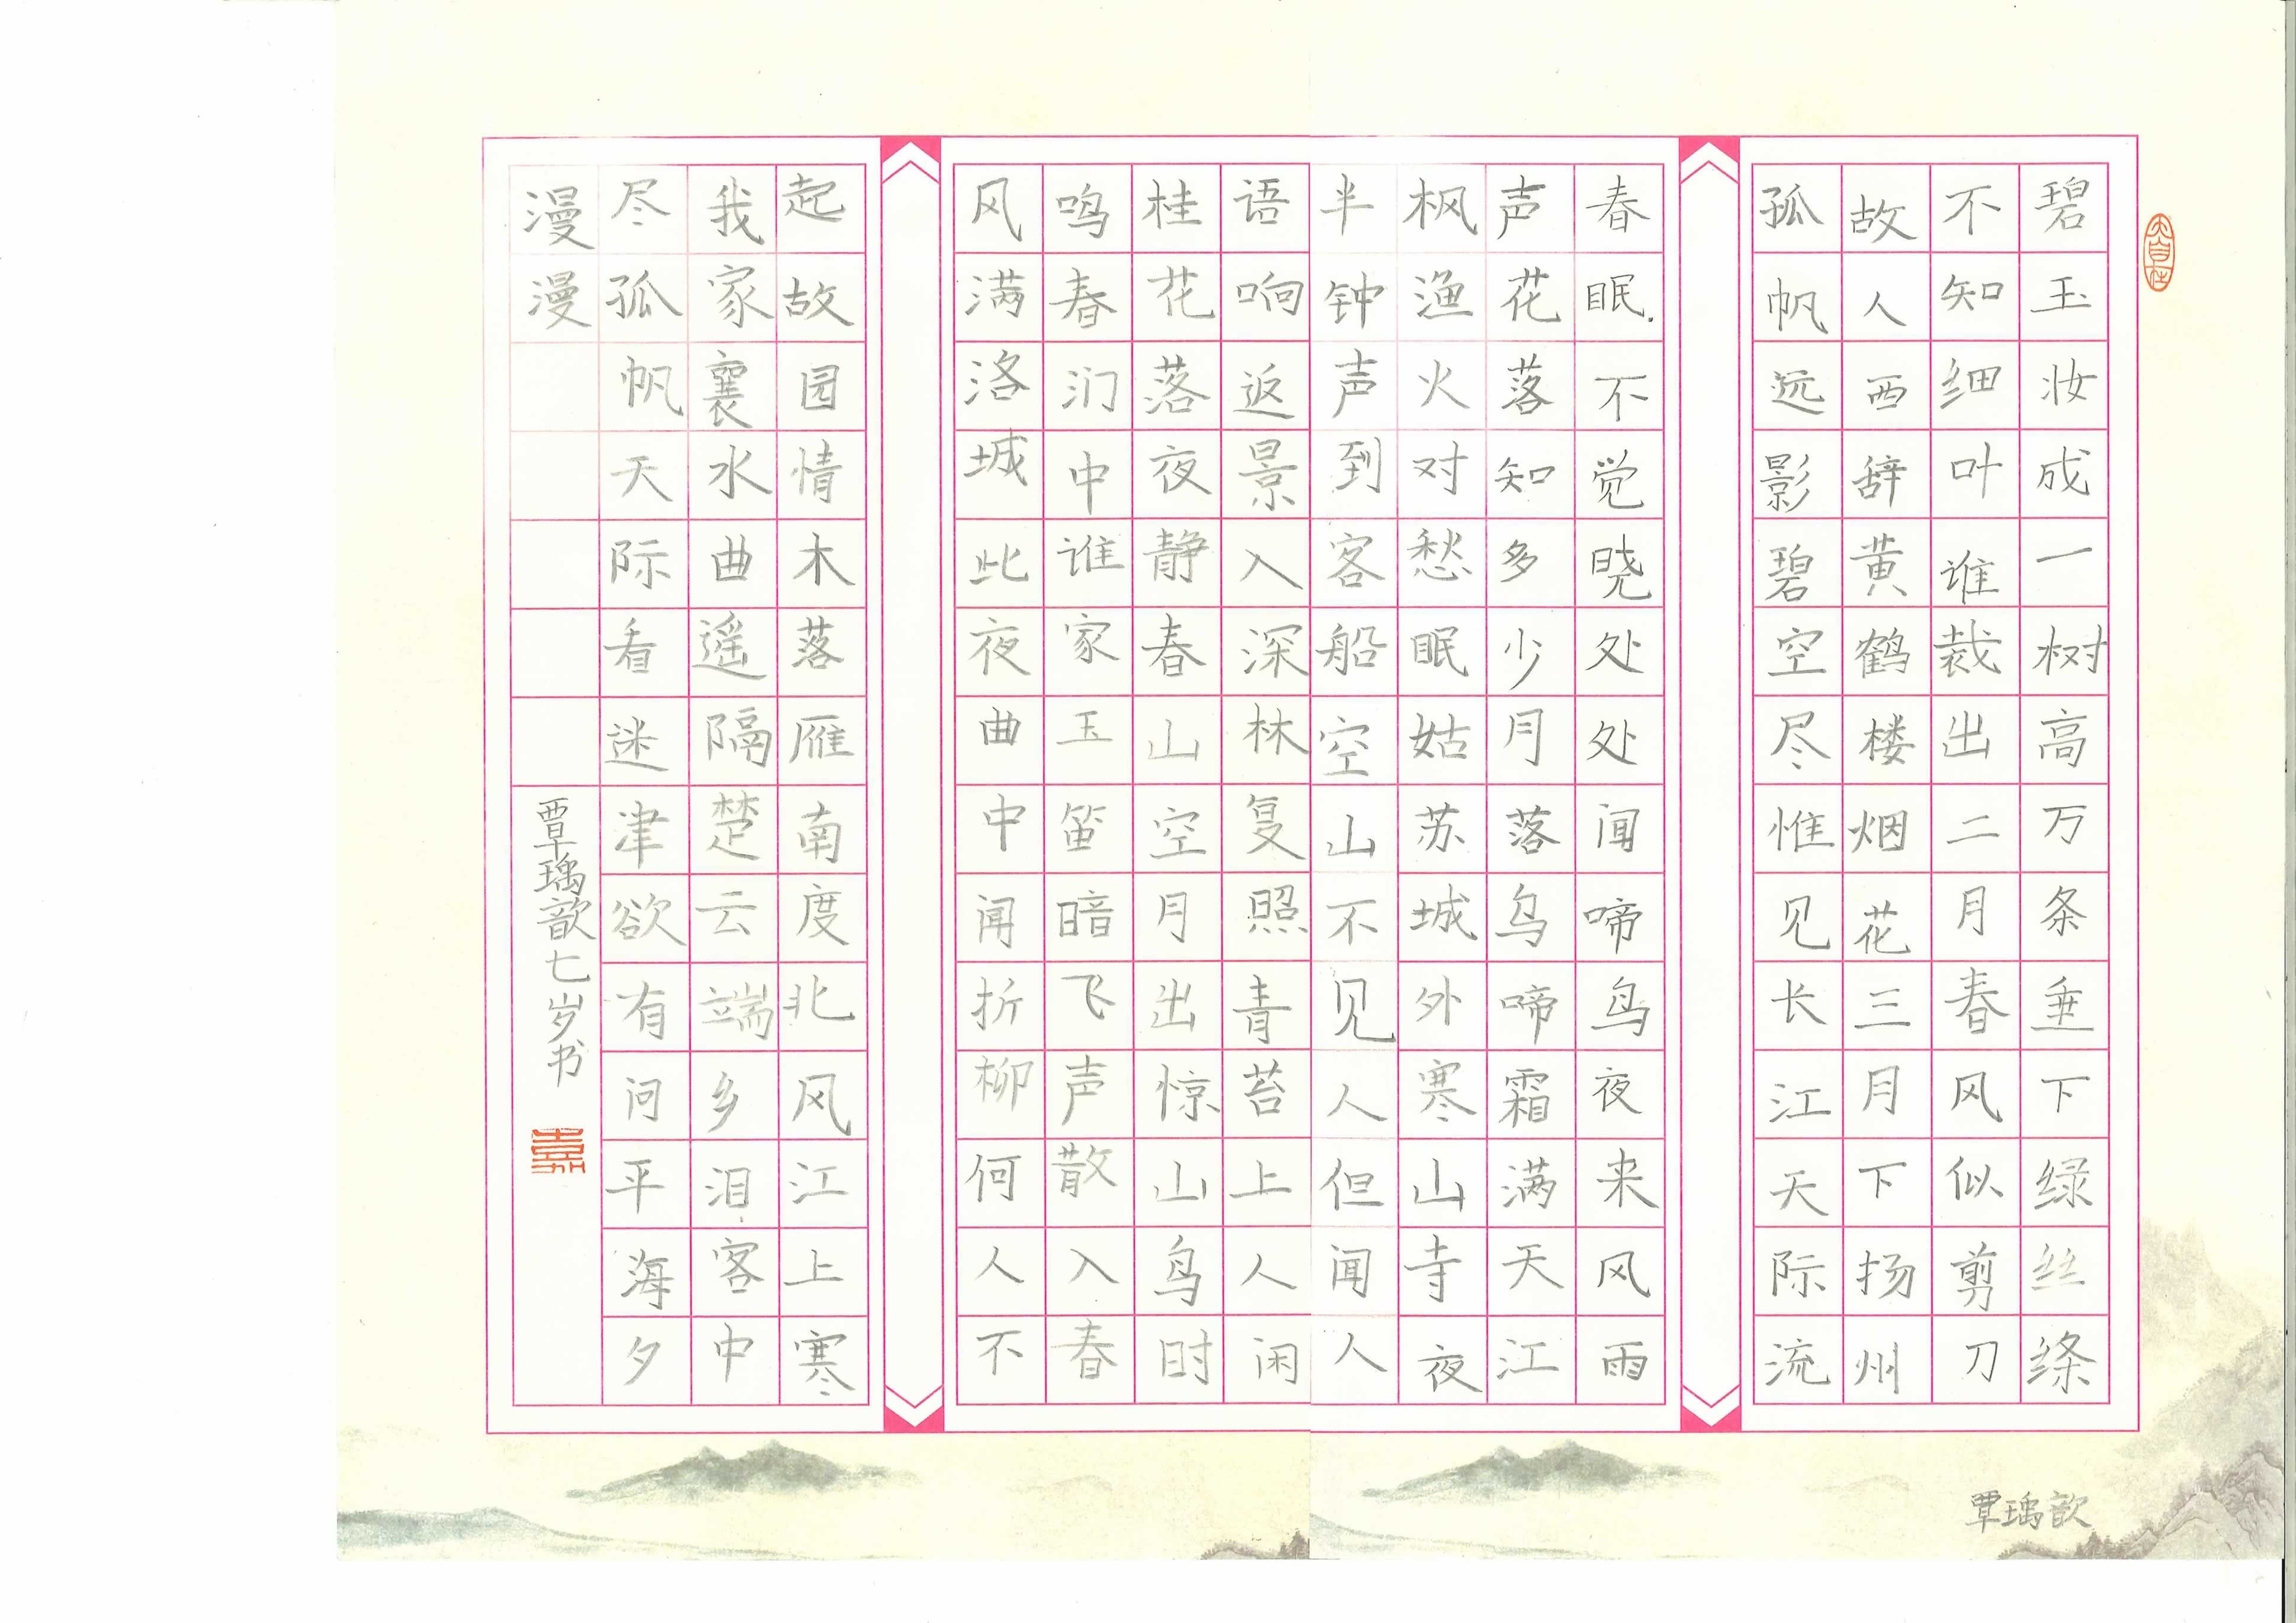 碧玉妆成一树高万条垂下绿丝绦
不知细叶谁裁出二月春风似剪刀
故人西辞黄鹤楼烟花三月下扬州
孤帆远影碧空尽惟见长江天际流
春眠不觉晓处处闻啼鸟夜来风雨
声花落知多少月落乌啼霜满天江
枫渔火对愁眠姑苏城外寒山寺夜
半钟声到客船空山不见人但闻人
语响返景入深林复照青苔上人闲
桂花落夜静春山空月出惊山鸟时
鸣春涧中谁家玉笛暗飞声散入春
风满洛城此夜曲中闻折柳何人不
起故园情木落雁南度北风江上寒
我家襄水曲遥隔楚云端乡泪客中
尽孤帆天际看迷津欲有问平海夕
漫漫
覃瑀歆七岁书
覃瑀歆